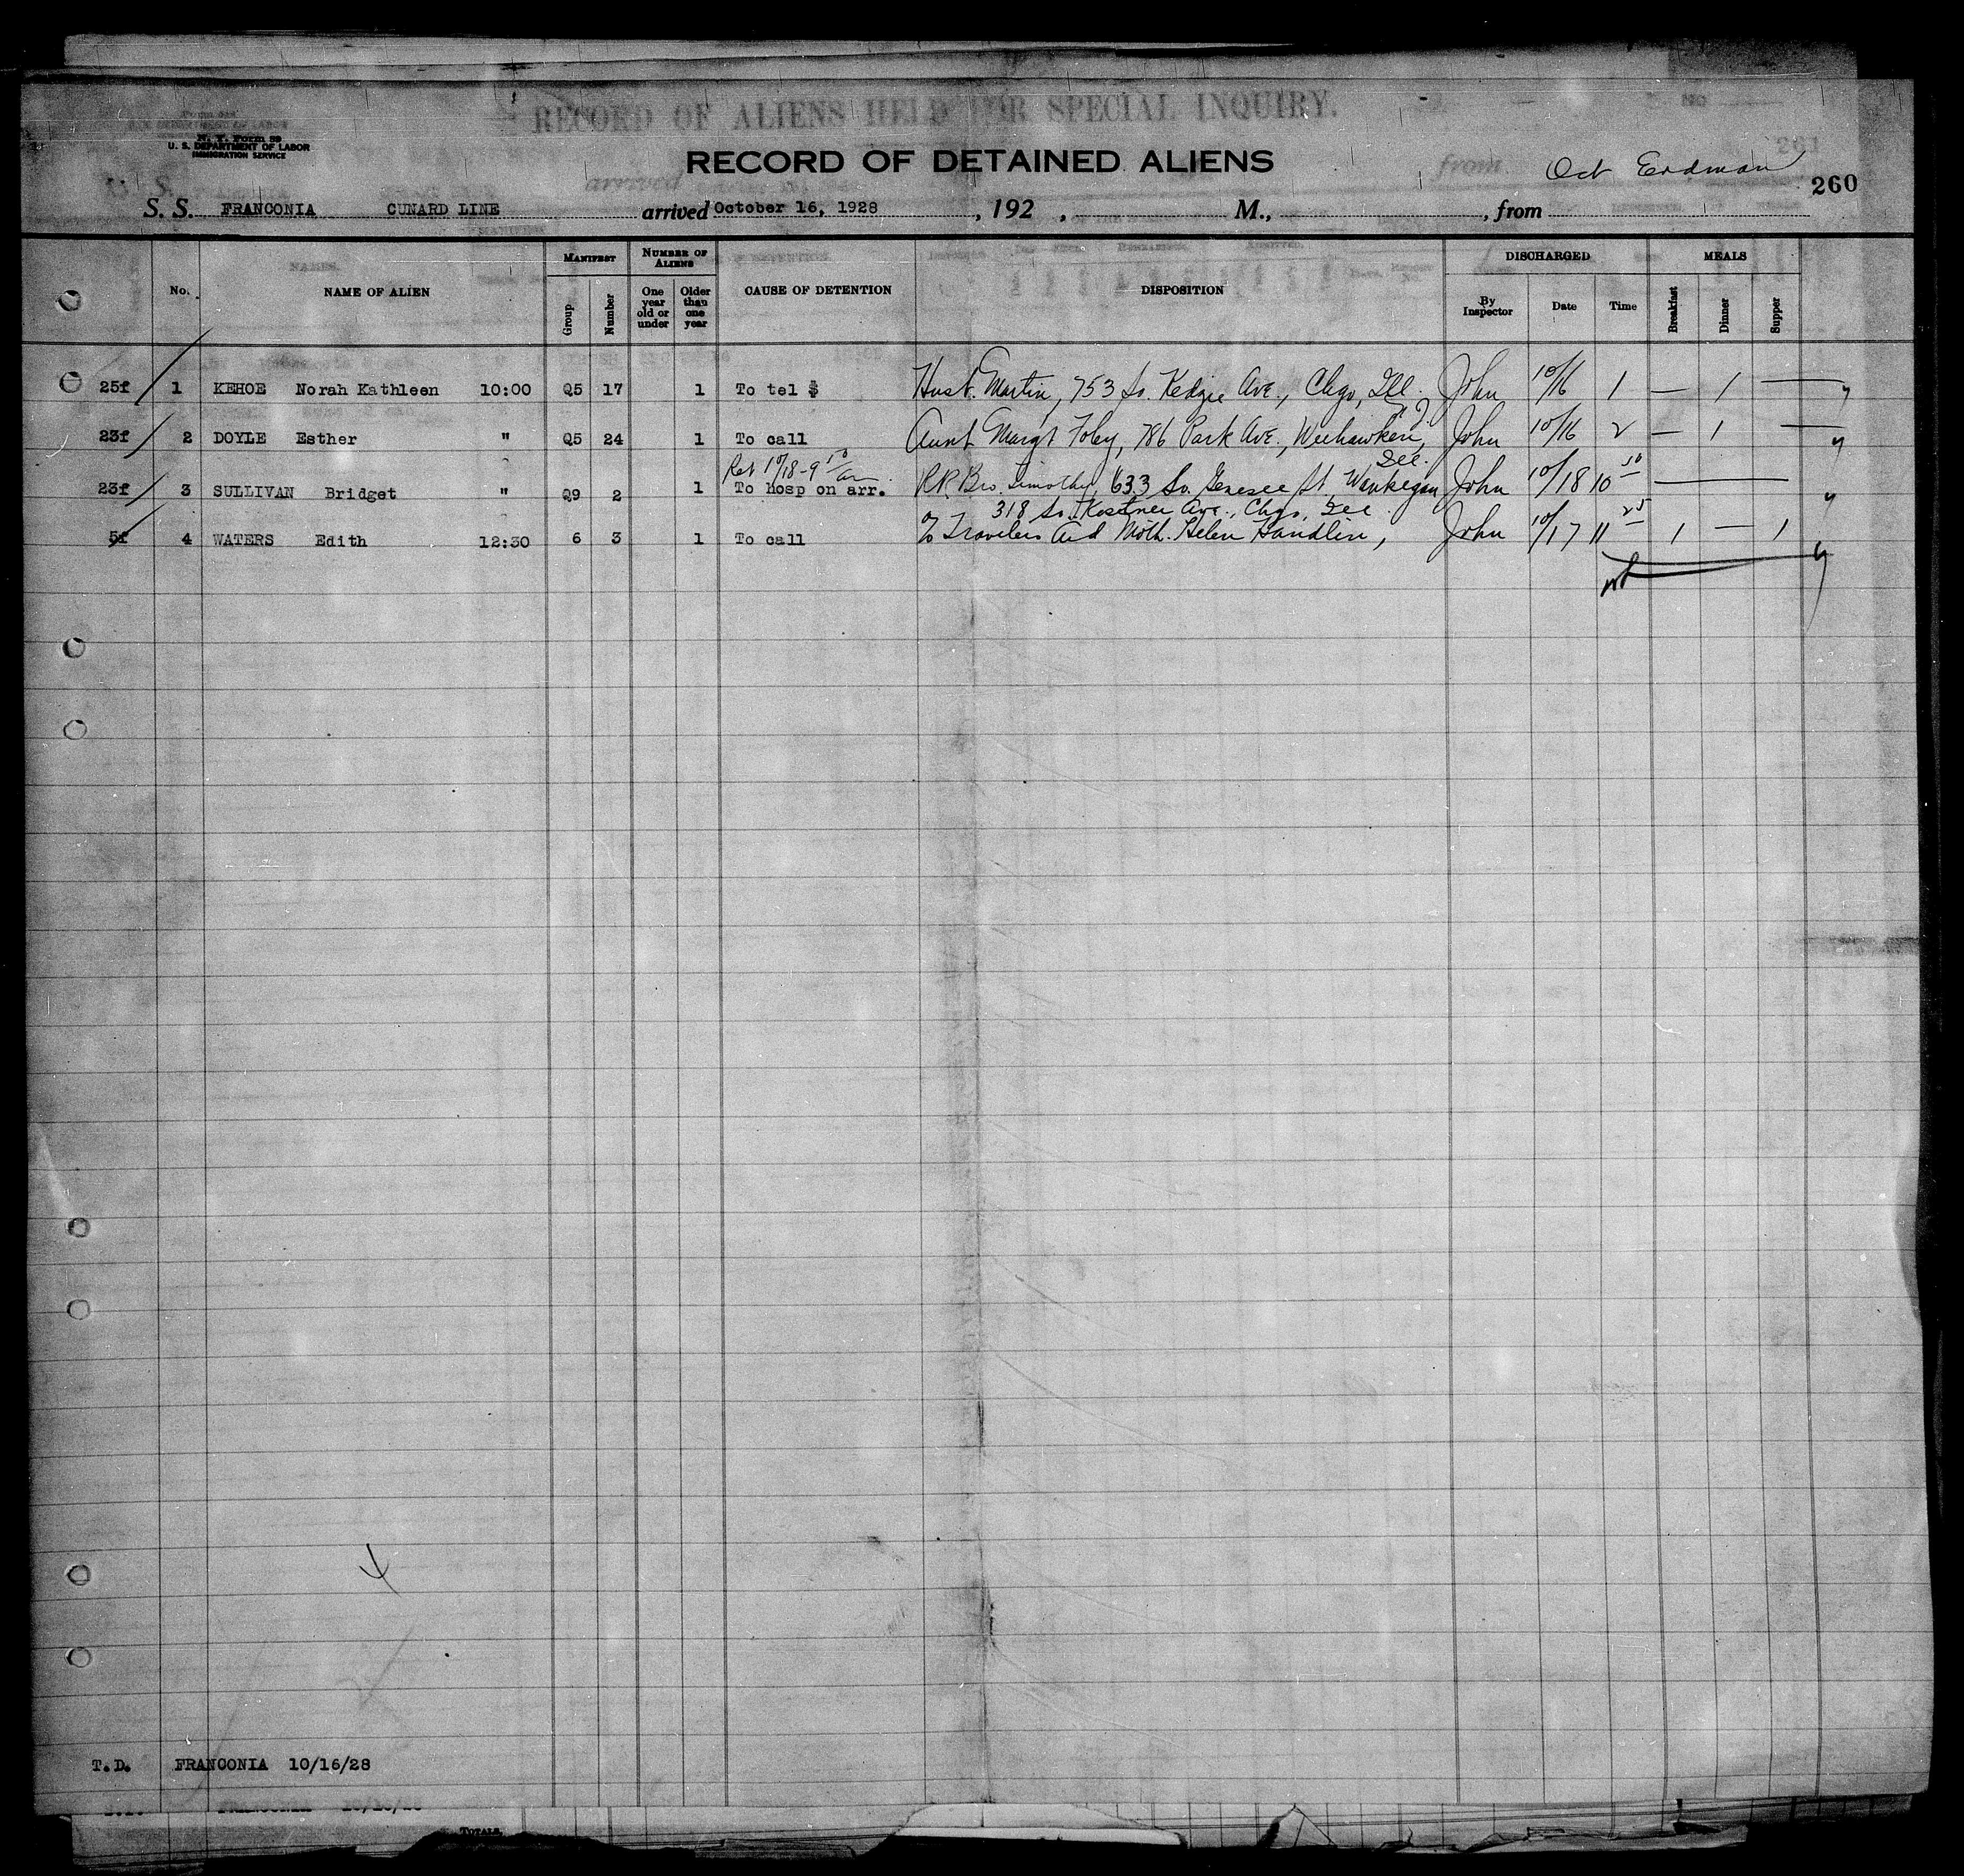 RECORD OF ALIENS HELD FOR SPECIAL INQUIRY.
N. Y. Form 59
U. S. DEPARTMENT OF LABOR
IMMIGRATION SERVICE
RECORD OF DETAINED ALIENS
Oct Erdman
260
S. S. FRANCONIA CUNARD LINE arrived October 16, 1928 , 192 , M., , from
No. NAME OF ALIEN MANIFEST Group Number NUMBER OF ALIENS One year old or under Older than one year CAUSE OF DETENTION DISPOSITION DISCHARGED By Inspector Date Time MEALS Breakfast Dinner Supper
25f 1 KEHOE Norah Kathleen 10:00 Q5 17 1 To tel $ Husb. Martin, 753 So. Kedzie Ave., Chgo, Ill. John 10/16 1 — 1 —
23f 2 DOYLE Esther " Q5 24 1 To call Aunt Margt Foley, 786 Park Ave., Weehawken, N.J. John 10/16 2 — 1 —
Ret 10/18-9 50 am
23f 3 SULLIVAN Bridget " Q9 2 1 To hosp on arr. RR. Bro. Timothy, 633 So. Genesee St. Waukegan Ill. John 10/18 10 50 —
318 So. Kostner Ave., Chgo, Ill.
5f 4 WATERS Edith 12:30 6 3 1 To call % Travelers Aid Moth. Helen Handlin, John 10/17 11 25 1 — 1
4
T.D. FRANCONIA 10/16/28
FRANCONIA 10/16/28
TOTALS,